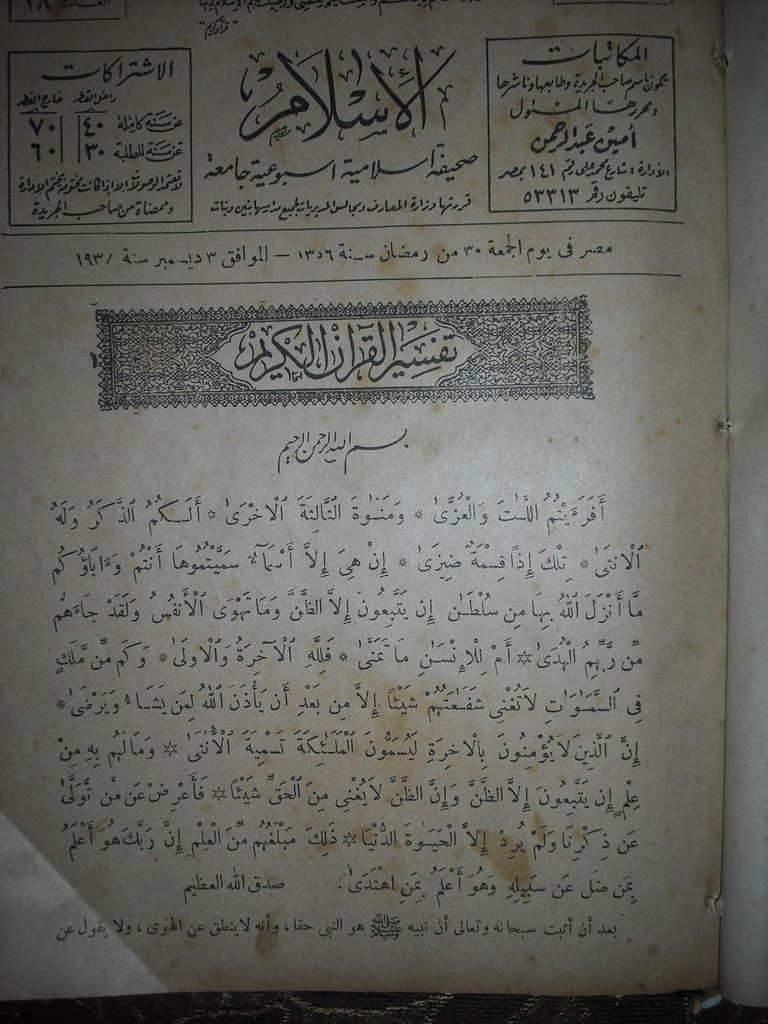 العدد ٣٨
قرآن كريم
المكاتبات
تكون باسم صاحب الجريدة وطابعها وناشرها
ومحررها المسئول
أمين عبد الرحمن
الإدارة : شارع محمد علي رقم ١٤١ بمصر
تليفون رقم ٥٣٣١٣
الإسلام
صحيفة اسلامية اسبوعية جامعة
قررتها وزارة المعارف ومجالس المديريات لجميع مدارسها بنين وبنات
الاشتراكات
داخل القطر خارج القطر
عن سنة كاملة ٤٠ ٧٠
عن سنة للطلبة ٣٠ ٦٠
لا تعتمد الوصولات الا اذا كانت مختومة بختم الادارة
وممضاة من صاحب الجريدة
مصر فى يوم الجمعة ٣٠ من رمضان سنة ١٣٥٦ — الموافق ٣ ديسمبر سنة ١٩٣
تفسير القرآن الكريم
بسم الله الرحمن الرحيم
أَفَرَءَيْتُمُ اللَّٰتَ وَالْعُزَّىٰ * وَمَنَوٰةَ الثَّالِثَةَ الْأُخْرَىٰ * أَلَكُمُ الذَّكَرُ وَلَهُ
الْأُنثَىٰ * تِلْكَ إِذًا قِسْمَةٌ ضِيزَىٰ * إِنْ هِىَ إِلَّا أَسْمَاءٌ سَمَّيْتُمُوهَا أَنْتُمْ وَءَابَاؤُكُم
مَّا أَنْزَلَ اللَّهُ بِهَا مِن سُلْطَٰنٍ إِن يَتَّبِعُونَ إِلَّا الظَّنَّ وَمَا تَهْوَى الْأَنفُسُ وَلَقَدْ جَاءَهُم
مِّن رَّبِّهِمُ الْهُدَىٰ * أَمْ لِلْإِنْسَٰنِ مَا تَمَنَّىٰ * فَلِلَّهِ الْآخِرَةُ وَالْأُولَىٰ * وَكَم مِّن مَّلَكٍ
فِى السَّمَٰوَاتِ لَا تُغْنِى شَفَٰعَتُهُمْ شَيْئًا إِلَّا مِن بَعْدِ أَن يَأْذَنَ اللَّهُ لِمَن يَشَاءُ وَيَرْضَىٰ *
إِنَّ الَّذِينَ لَا يُؤْمِنُونَ بِالْآخِرَةِ لَيُسَمُّونَ الْمَلَٰئِكَةَ تَسْمِيَةَ الْأُنثَىٰ * وَمَا لَهُم بِهِ مِنْ
عِلْمٍ إِن يَتَّبِعُونَ إِلَّا الظَّنَّ وَإِنَّ الظَّنَّ لَا يُغْنِى مِنَ الْحَقِّ شَيْئًا * فَأَعْرِضْ عَن مَّن تَوَلَّىٰ
عَن ذِكْرِنَا وَلَمْ يُرِدْ إِلَّا الْحَيَوٰةَ الدُّنْيَا * ذَٰلِكَ مَبْلَغُهُم مِّنَ الْعِلْمِ إِنَّ رَبَّكَ هُوَ أَعْلَمُ
بِمَن ضَلَّ عَن سَبِيلِهِ وَهُوَ أَعْلَمُ بِمَنِ اهْتَدَىٰ . صدق الله العظيم
بعد أن أثبت سبحانه وتعالى أن نبيه ﷺ هو النبى حقا ، وأنه لا ينطق عن الهوى ، ولا يقول عن